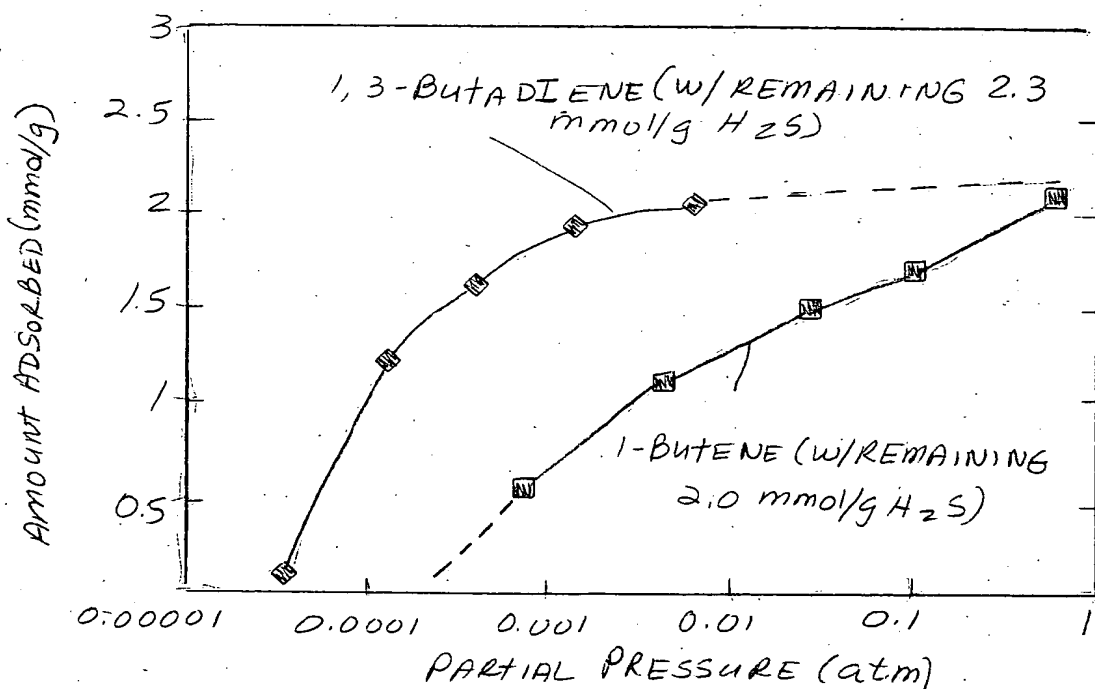 3
2.5
2
1.5
1
0.5
AMOUNT ADSORBED (mmol/g)
1,3-BUTADIENE (W/ REMAINING 2.3
mmol/g H2S)
1-BUTENE (W/REMAINING
2.0 mmol/g H2S)
0.00001 0.0001 0.001 0.01 0.1 1
PARTIAL PRESSURE (atm)